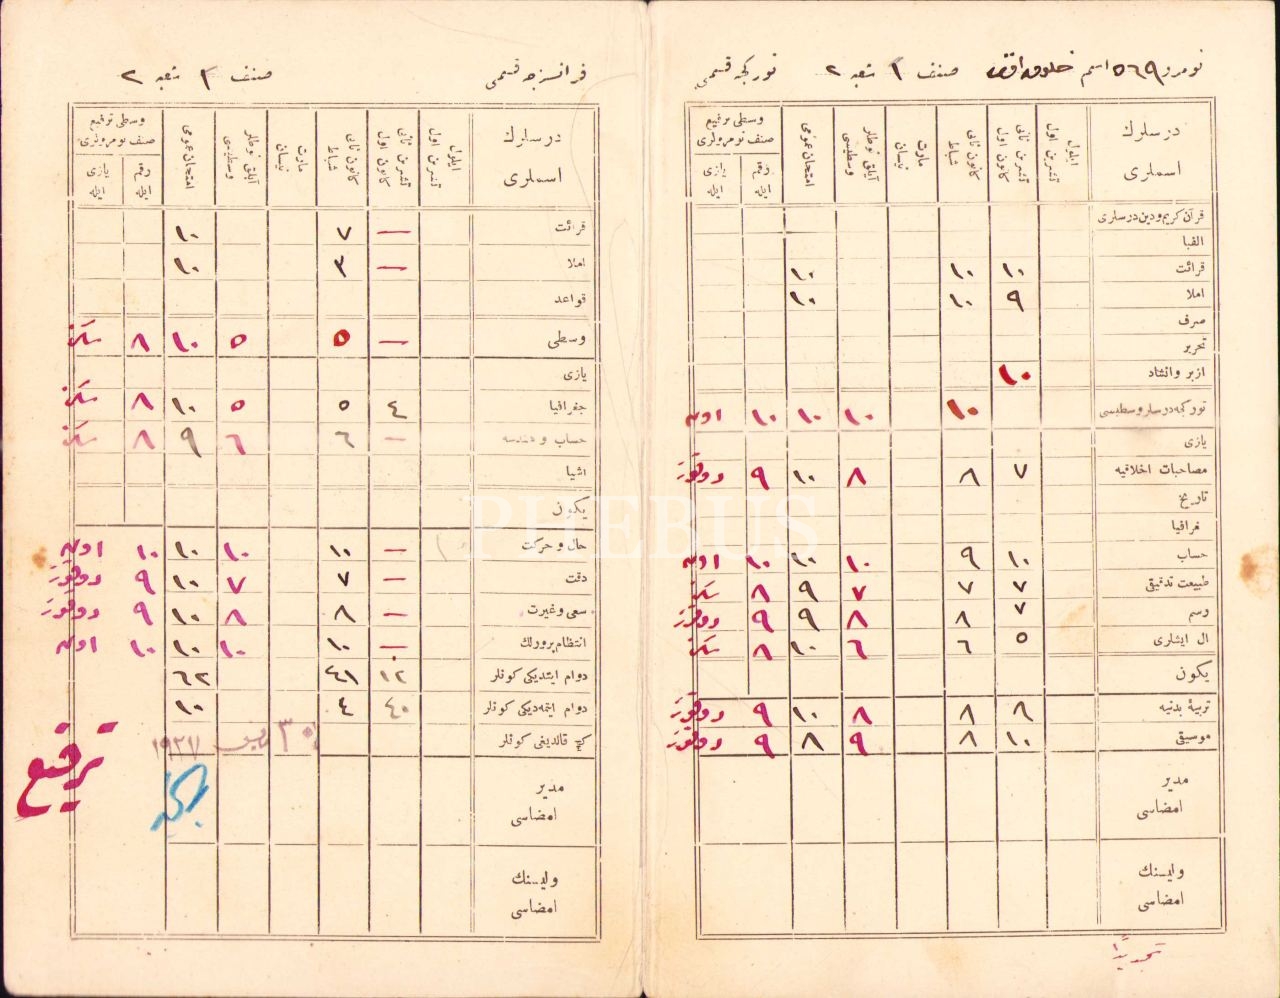 نومرو ٥٦٩ اسم خلوق افق صنف ١ شعبه ٢ تورکجه قسمی
درسلرك اسملری
ایلول تشرین اول
تشرین ثانی کانون اول
کانون ثانی شباط
مارت نیسان
آیلق نوطلر وسطیسی
امتحان عمومی
وسطی ترفیع صنف نومرولری
رقم ایله
یازی ایله
قرآن کریم و دین درسلری
الفبا
قرائت ١٠ ١٠ ١٠
املا ٩ ١٠ ١٠
صرف
تحریر
ازبر و انشاد ١٠
تورکجه درسلر وسطیسی ١٠ ١٠ ١٠ ١٠ اون
یازی
مصاحبات اخلاقیه ٧ ٨ ٨ ١٠ ٩ دوقوز
تاریخ
غرافیا
حساب ١٠ ٩ ١٠ ١٠ ١٠ اون
طبیعت تدقیقی ٧ ٧ ٧ ٩ ٨ سکز
رسم ٧ ٨ ٨ ٩ ٩ دوقوز
ال ایشلری ٥ ٦ ٦ ١٠ ٨ سکز
یکون
تربیهٔ بدنیه ٨ ٨ ٨ ١٠ ٩ دوقوز
موسیقی ١٠ ٨ ٩ ٨ ٩ دوقوز
مدیر امضاسی
ولیسنك امضاسی
تجدیداً
فرانسزجه قسمی صنف ٣ شعبه ٢
درسلرك اسملری
ایلول تشرین اول
تشرین ثانی کانون اول
کانون ثانی شباط
مارت نیسان
آیلق نوطلر وسطیسی
امتحان عمومی
وسطی ترفیع صنف نومرولری
رقم ایله
یازی ایله
قرائت — ٧ ١٠
املا — ٣ ١٠
قواعد
وسطی — ٥ ٥ ١٠ ٨ سکز
یازی
جغرافیا ٤ ٥ ٥ ١٠ ٨ سکز
حساب و هندسه — ٦ ٦ ٩ ٨ سکز
اشیا
یکون
حال و حرکت — ١٠ ١٠ ١٠ ١٠ اون
دقت — ٧ ٧ ١٠ ٩ دوقوز
سعی و غیرت — ٨ ٨ ١٠ ٩ دوقوز
انتظام پرورلك — ١٠ ١٠ ١٠ ١٠ اون
دوام ایتدیکی کونلر ١٢ ٤١ ٦٢
دوام ایتمه‌دیکی کونلر ٤٠ ٤ ١٠
کچ قالدیغی کونلر
٣٠ ١٩٢٧
ترفیع
مدیر امضاسی
ولیسنك امضاسی
PHEBUS